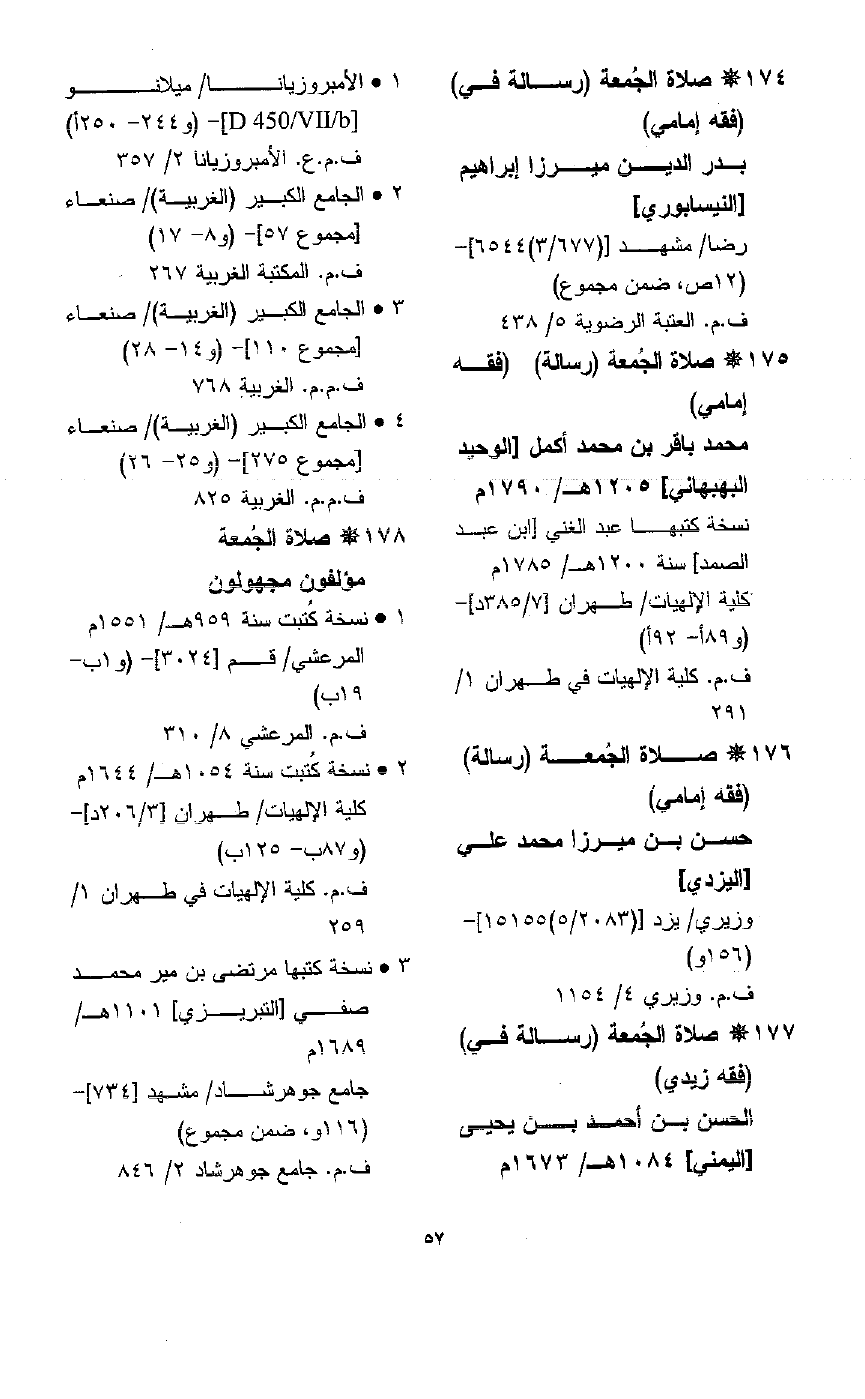 ١٧٤ ❋ صلاة الجُمعة (رسالة في)
(فقه إمامي)
بدر الدين ميرزا إبراهيم
[النيسابوري]
رضا/ مشهد [(٣/٦٧٧)٦٥٤٤]–
(١٢ص، ضمن مجموع)
ف.م. العتبة الرضوية ٥/ ٤٣٨
١٧٥ ❋ صلاة الجُمعة (رسالة) (فقه
إمامي)
محمد باقر بن محمد أكمل [الوحيد
البهبهاني] ١٢٠٥هـ/ ١٧٩٠م
نسخة كتبها عبد الغني [ابن عبد
الصمد] سنة ١٢٠٠هـ/ ١٧٨٥م
كلية الإلهيات/ طهران [٣٨٥/٧د]–
(و٨٩أ– ٩٢أ)
ف.م. كلية الإلهيات في طهران ١/
٢٩١
١٧٦ ❋ صلاة الجُمعة (رسالة)
(فقه إمامي)
حسن بن ميرزا محمد علي
[اليزدي]
وزيري/ يزد [(٥/٢٠٨٣)١٥١٥٥]–
(١٥٦و)
ف.م. وزيري ٤/ ١١٥٤
١٧٧ ❋ صلاة الجُمعة (رسالة في)
(فقه زيدي)
الحسن بن أحمد بن يحيى
[اليمني] ١٠٨٤هـ/ ١٦٧٣م
١ • الأمبروزيانا/ ميلانو
[D 450/VII/b]– (و٢٤٤– ٢٥٠أ)
ف.م.ع. الأمبروزيانا ٢/ ٣٥٧
٢ • الجامع الكبير (الغربية)/ صنعاء
[مجموع ٥٧]– (و٨– ١٧)
ف.م. المكتبة الغربية ٢٦٧
٣ • الجامع الكبير (الغربية)/ صنعاء
[مجموع ١١٠]– (و١٤– ٢٨)
ف.م.م. الغربية ٧٦٨
٤ • الجامع الكبير (الغربية)/ صنعاء
[مجموع ٢٧٥]– (و٢٥– ٢٦)
ف.م.م. الغربية ٨٢٥
١٧٨ ❋ صلاة الجُمعة
مؤلفون مجهولون
١ • نسخة كُتبت سنة ٩٥٩هـ/ ١٥٥١م
المرعشي/ قم [٣٠٢٤]– (و١ب–
١٩ب)
ف.م. المرعشي ٨/ ٣١٠
٢ • نسخة كُتبت سنة ١٠٥٤هـ/ ١٦٤٤م
كلية الإلهيات/ طهران [٢٠٦/٣د]–
(و٨٧ب– ١٢٥ب)
ف.م. كلية الإلهيات في طهران ١/
٢٥٩
٣ • نسخة كتبها مرتضى بن مير محمد
صفي [التبريزي] ١١٠١هـ/
١٦٨٩م
جامع جوهرشاد/ مشهد [٧٣٤]–
(١١٦و، ضمن مجموع)
ف.م. جامع جوهرشاد ٢/ ٨٤٦
٥٧